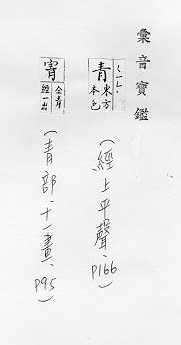 彙音寶鑑
く一ㄥ
青
東方
本色
(經上平聲、P166)
甯
仝青
經一出
(青部、十一畫、P95)